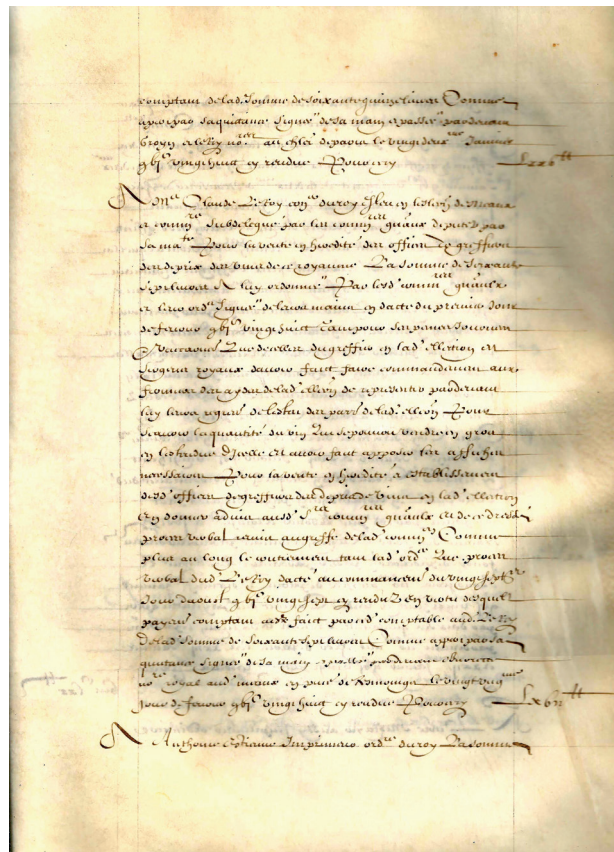 comptant de lad. somme de soixante quinze livres Comme
appert par sa quittance signee de sa main et passee pardevant
au chlet de paris le vingt deux.me Janvier
vingt huict cy rendue Pour cecy
Lxxv tt
A Me Claude Le Roy con.er du roy esleu en lelection de Meaux
et comm.re subdelegué par les comm.res gnaulx deputez par
sa ma.te Pour la vente en heredité des offices de greffiers
des des vins de ce royaume La somme de soixante
sept livres A luy ordonnee Par lesd. comm.res gnaulx
et leur ord.ce signee de leurs mains en datte du premier jour
de febvrier vingt huict tant pour ses peines
Vaccations Que de celles du greffier en lad. ellection et
sergens royaux davoir faict faire commandement aux
fermiers des aydes de lad. ellon de representer pardevant
luy leurs de lad. ellon Pour
scavoir la quantité du vin Qui se pouvoit vendre en gros
en lestendue Dicelle et avoir faict apposer les affiches
necessaires Pour la vente en heredité et establissement
desd. offices de greffiers des de vins en lad. ellection
en donner advis ausd. Srs comm.res gnaulx et de ce dressé
procez verbal au greffe de lad. comm.on Comme
plus au long le contiennent tant lad. ord.ce Que procez
verbal dud. Le Roy datté au commancem.t du vingt sept.me
jour daoust vingt sept cy rendu En vertu desquelz
payem.t comptant a esté faict par ced. comptable aud. Le Roy
De lad. somme de soixante sept livres Comme appert par sa
quittance signee de sa main passee pardevant
no.re royal aud. meaux en pnce de tesmoings le vingt
jour de febvrier vingt huict cy rendue Pour cecy
Lxvii tt
A Anthoine Estienne Imprimeur ord.re du roy La somme